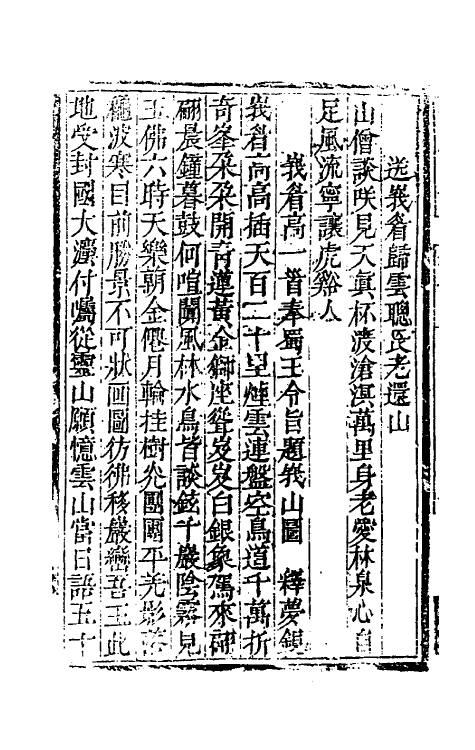 送峩眉歸雲聰長老還山
山僧談咲見天眞杯渡滄溟萬里身老愛林泉心自
足風流寧讓虎谿人
峩眉高一首奉蜀王令旨題峩山圖　釋夢觀
峩眉高高插天百二十里煙雲連盤空鳥道千萬折
奇峯朶朶開青蓮黃金獅座聳岌岌白銀象駕來翩
翩晨鐘暮鼓何喧闐風林水鳥皆談鉉千巖陰霧見
玉佛六時天樂朝金僊月輪桂樹光團團平羌影落
波寒目前勝景不可狀畫圖彷彿移巖巒吾王此
地受封國大灋付囑從靈山願憶雲山當日語五十